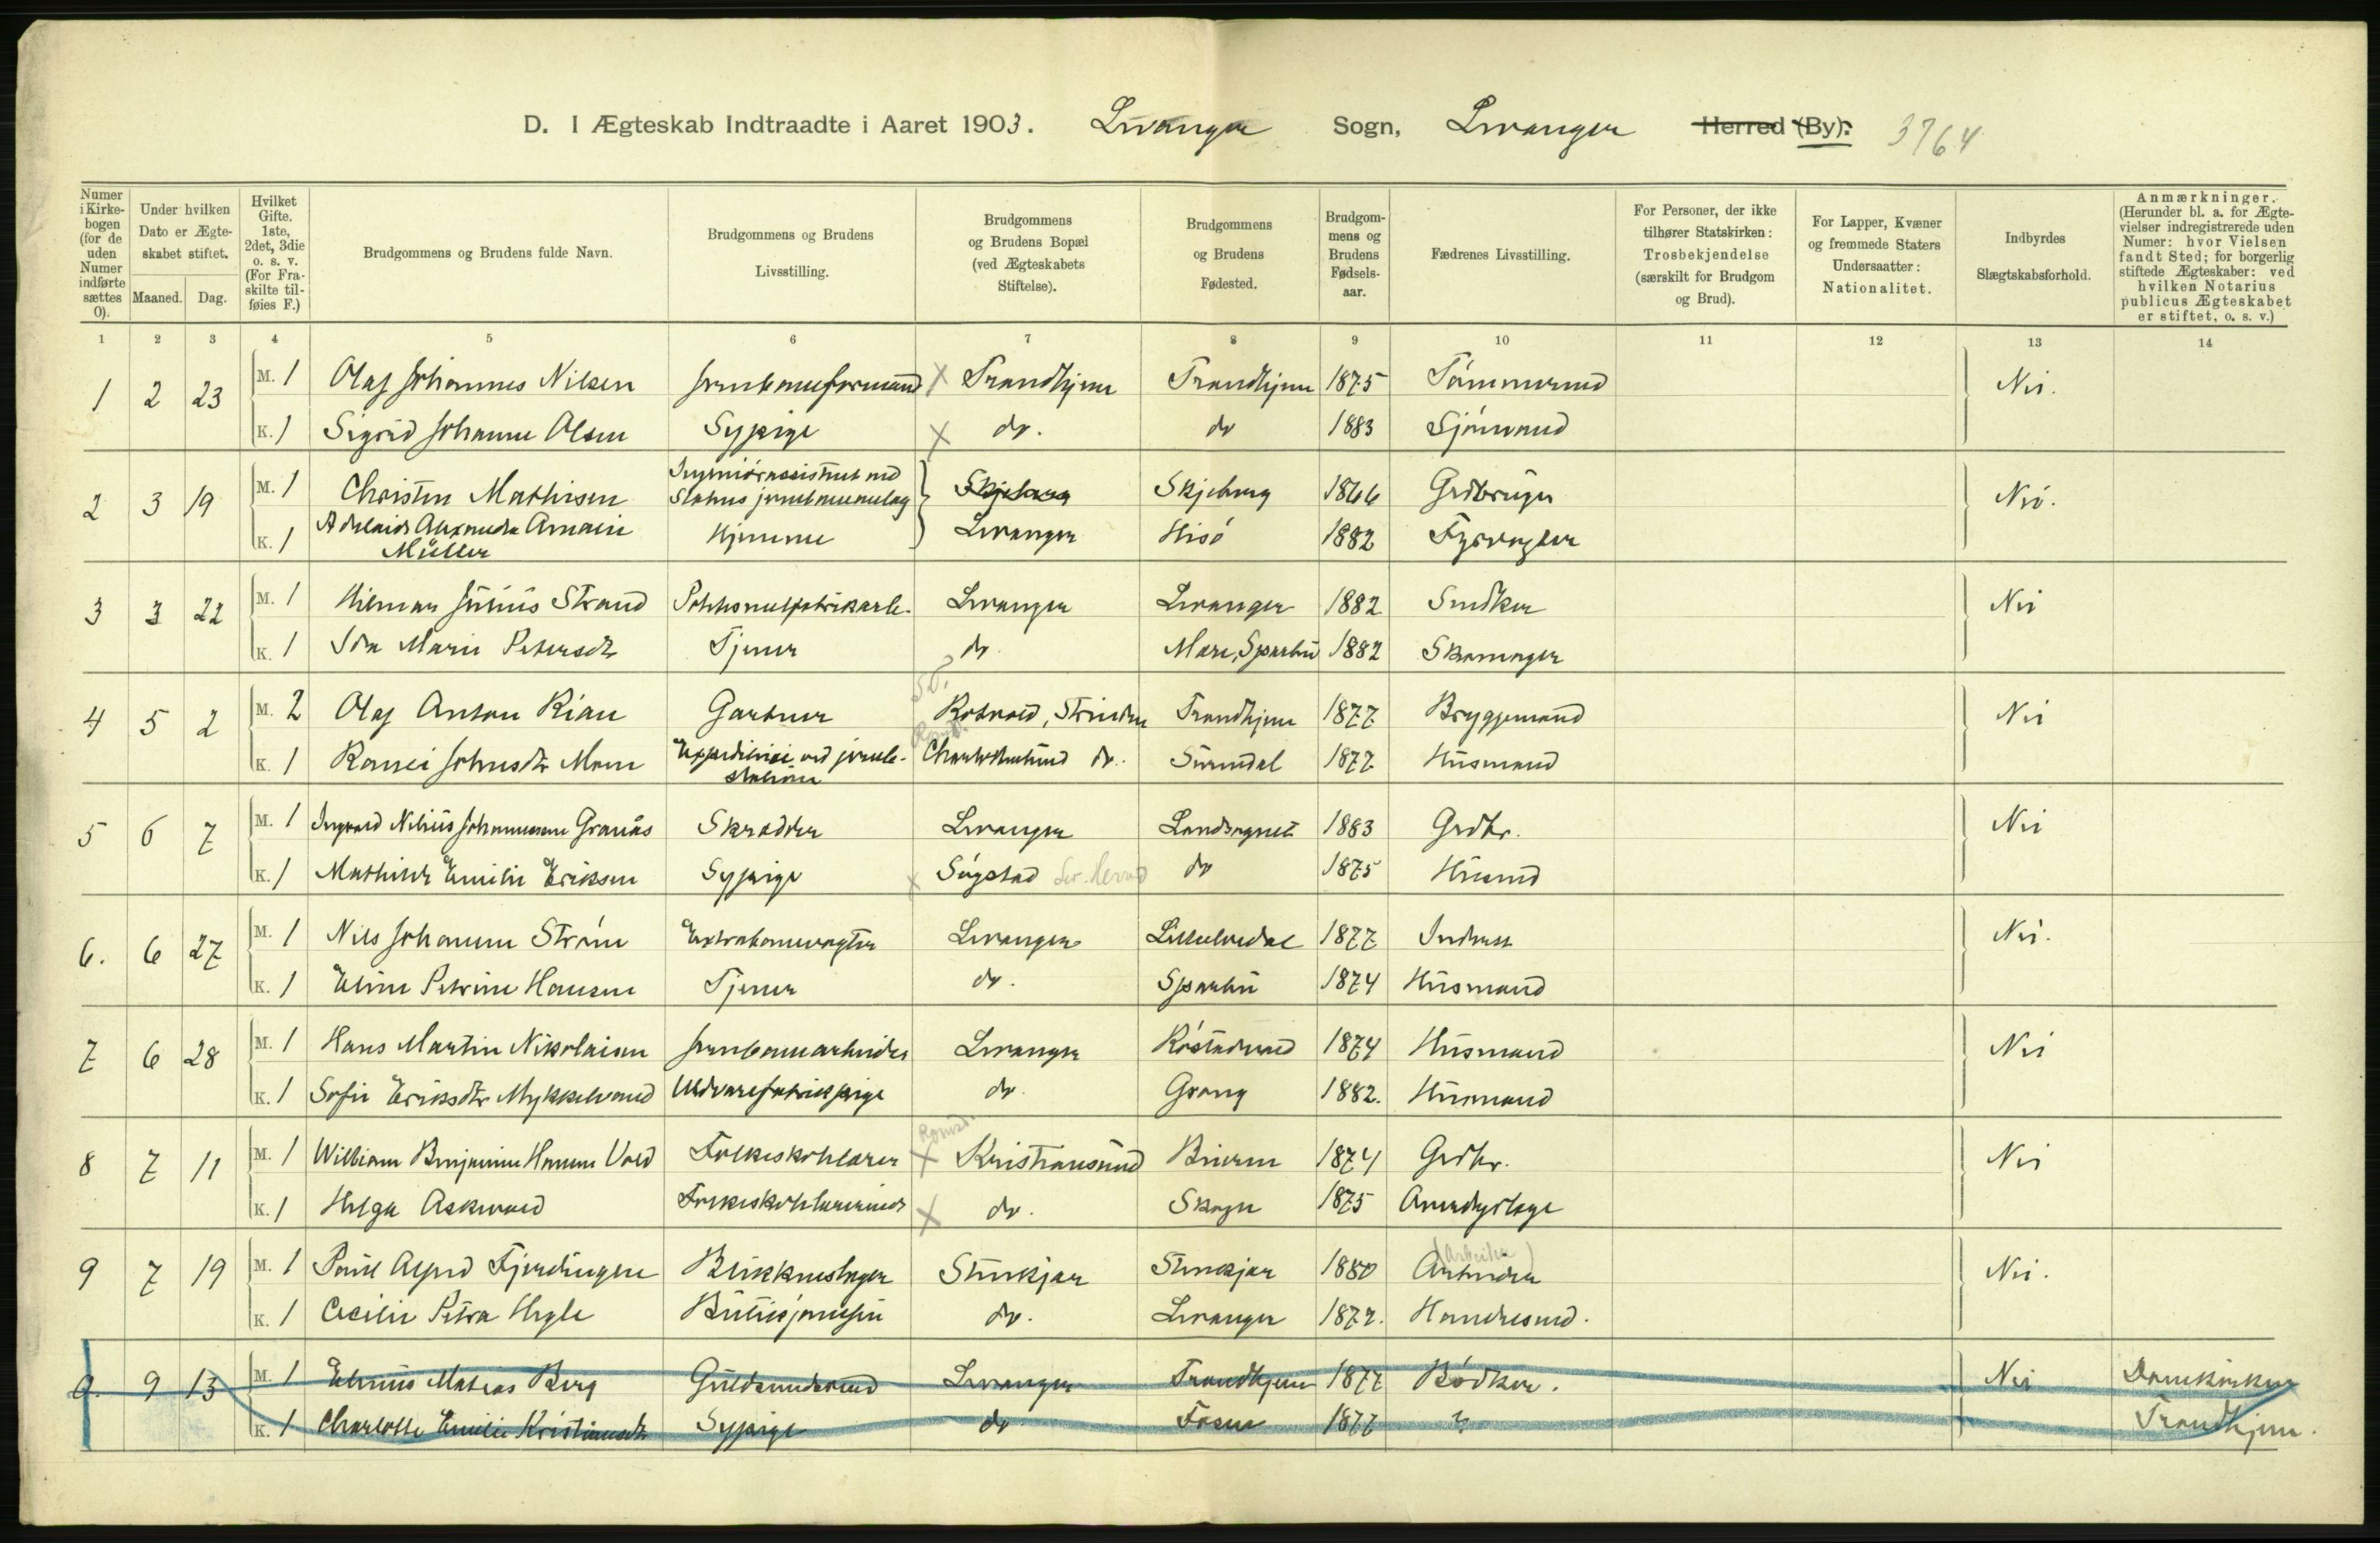 D. I Ægteskab Indtraadte i Aaret 1903. Levanger Sogn, Levanger Herred (By). 3764
Numer i Kirke-bogen (for de uden Numer indførte sættes 0).
Under hvilken Dato er Ægte-skabet stiftet.
Maaned. Dag.
Hvilket Gifte. 1ste, 2det, 3die o. s. v. (For Fra-skilte til-føies F.)
Brudgommens og Brudens fulde Navn.
Brudgommens og Brudens Livsstilling.
Brudgommens og Brudens Bopæl (ved Ægteskabets Stiftelse).
Brudgommens og Brudens Fødested.
Brudgom-mens og Brudens Fødsels-aar.
Fædrenes Livsstilling.
For Personer, der ikke tilhører Statskirken: Trosbekjendelse (særskilt for Brudgom og Brud).
For Lapper, Kvæner og fremmede Staters Undersaatter: Nationalitet.
Indbyrdes Slægtskabsforhold.
Anmærkninger. (Herunder bl. a. for Ægte-vielser indregistrerede uden Numer: hvor Vielsen fandt Sted; for borgerlig stiftede Ægteskaber: ved hvilken Notarius publicus Ægteskabet er stiftet, o. s. v.)
1 2 3 4 5 6 7 8 9 10 11 12 13 14
1 2 23 M. 1 Olaf Johannes Nilsen Jernbaneformand X Trondhjem Trondhjem 1875 Tømmermd Nei.
K. 1 Sigrid Johanne Olsen Sypige X do. do 1883 Sjømand
2 3 19 M. 1 Christen Mathisen Ingeniørassistent ved Statens jernbaneanlæg Skjeberg Skjeberg 1866 Grdbruger Nei.
K. 1 Adelaide Alexandra Amalie Müller Hjemme Levanger Hisø 1882 Fyrvogter
3 3 22 M. 1 Hilmar Julius Strand Levanger Levanger 1882 Snedker Nei
K. 1 Ida Marie Petersdtr Tjener do. Mære, Sparbu 1882 Skomager
4 5 2 M. 2 Olaf Anton Rian Gartner Rotvold, Strinden Trondhjem 1877 Bryggemand Nei
K. 1 Johnsdtr Moen ved jernb.-station Charlottenlund do. Surendal 1877 Husmand
5 6 7 M. 1 Ingvald Nilius Johannessen Granås Skrædder Levanger Landsognet 1883 Grdbr. Nei
K. 1 Mathilde Emilie Eriksen Sypige X Søgstad Lev. Herred do 1875 Husmd
6. 6 27 M. 1 Nils Johannes Strøm Extrabanevogter Levanger Lilleelvedal 1877 Inderst Nei.
K. 1 Eline Petrine Hansen Tjener do. Sparbu 1874 Husmand
7 6 28 M. 1 Hans Martin Nikolaisen Jernbanearbeider Levanger 1874 Husmand Nei
K. 1 Sofie Eriksdtr Mykkelvand Uldvarefabrikpige do. Grong 1882. Husmand
8 7 11 M. 1 William Benjamin Hansen Vold Folkeskolelærer Romsd. X Kristiansund Beieren 1874 Grdbr. Nei
K. 1 Helga Folkeskolelærerinde X do. Skogn 1875
9 7 19 M. 1 Paul Alfred Fjerdingen Blikkenslager Stenkjær Stenkjær 1880 Arbeider (Arbeider) Nei.
K. 1 Cecilie Petra Hegle Butikjomfru do. Levanger 1877. Handlesmd.
0. 9 13 M. 1 Elenius Matias Berg Guldsmedsvend Levanger Trondhjem 1877 Bødker. Nei Domkirken
K. 1 Charlotte Emilie Kristiansdtr Sypige do Fosen 1877 ? Trondhjem.